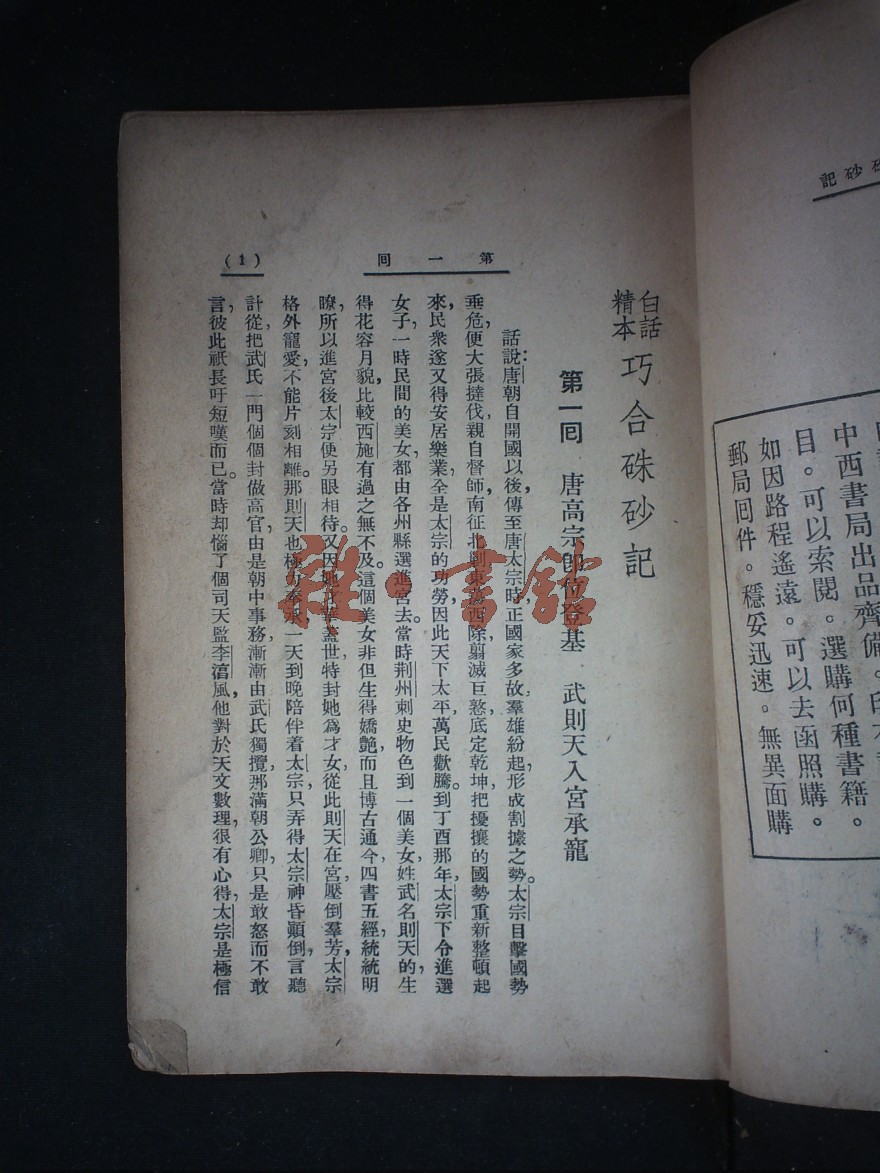 硃砂記
中西書局出品齊備。
目。可以索閱。選購何種書籍。
如因路程遙遠。可以去函照購。
郵局囘件。穩妥迅速。無異面購
白話
精本
巧合硃砂記
第一囘 唐高宗卽位登基 武則天入宮承寵
第一囘
(1)
話說:唐朝自開國以後傳至唐太宗時正國家多故,羣雄紛起,形成割據之勢。太宗目擊國勢
垂危,便大張撻伐,親自督師,南征北剿,東蕩西除,翦滅巨憝,底定乾坤,把擾攘的國勢重新整頓起
來,民衆遂又得安居樂業,全是太宗的功勞,因此天下太平,萬民歡騰。到丁酉那年,太宗下令進選
女子,一時民間的美女,都由各州縣選進宮去。當時荆州刺史物色到一個美女,姓武名則天的,生
得花容月貌,比較西施有過之無不及。這個美女非但生得嬌艷,而且博古通今,四書五經,統統明
瞭,所以進宮後,太宗便另眼相待。又因她才華蓋世,特封她爲才女,從此則天在宮,壓倒羣芳,太宗
格外寵愛,不能片刻相離。那則天也極力奉承,一天到晚陪伴着太宗,只弄得太宗神昏顚倒,言聽
計從,把武氏一門個個封做高官,由是朝中事務,漸漸由武氏獨攬,那滿朝公卿,只是敢怒而不敢
言,彼此祇長吁短嘆而已。當時却惱了個司天監李淳風,他對於天文數理,很有心得,太宗是極信
雜·書館